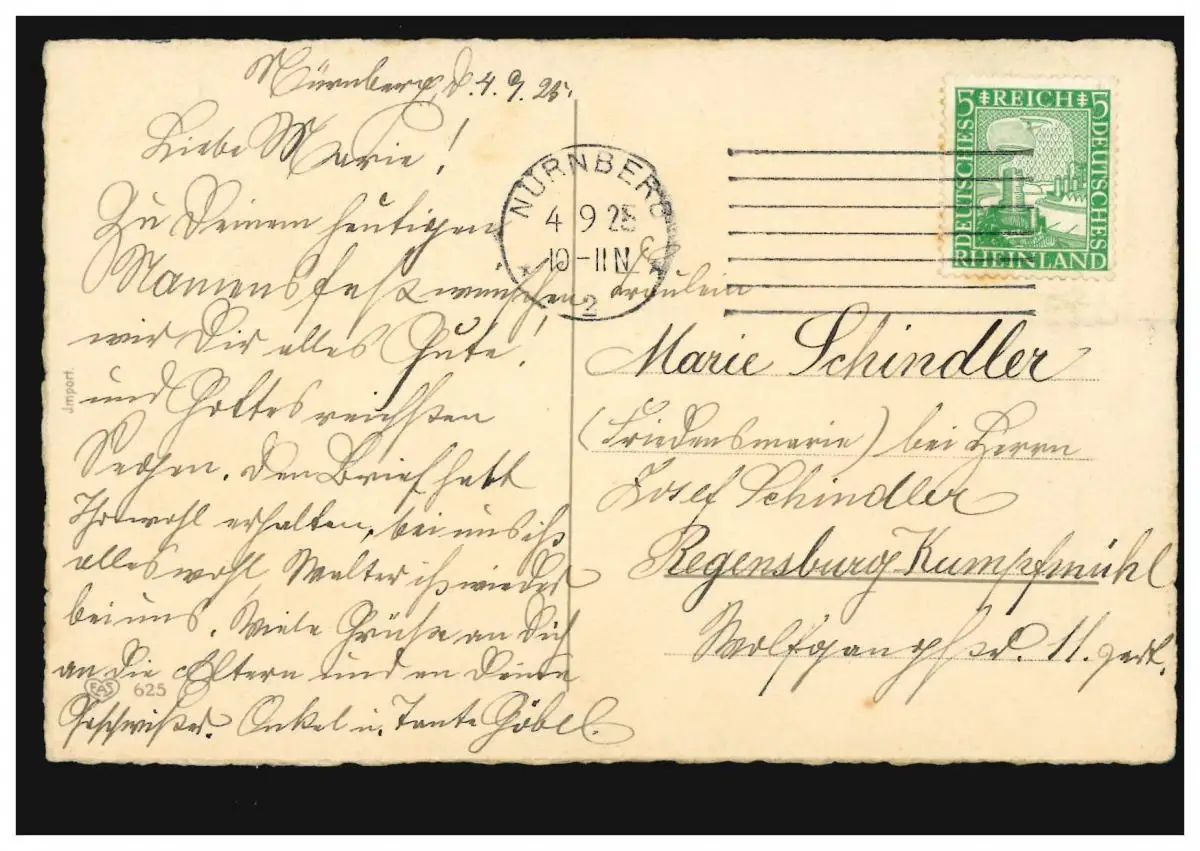 Nürnberg, d. 4.9.25.
Liebe Marie!
Zu Deinem heutigen
Namensfest wünschen
wir Dir alles Gute!
und Gottes reichsten
Segen. Den Brief habt
Ihr wohl erhalten, bei uns ist
alles wohl, Walter ist wieder
bei uns. Viele Grüße an Dich
an die Eltern und an Deine
Geschwister. Onkel u. Tante Göbel.
Jmport.
EAS 625
NÜRNBERG
4 9 25
10-11 N
2
5 REICH 5
DEUTSCHES
DEUTSCHES
RHEINLAND
Fräulein
Marie Schindler
(Friedensmarie) bei Herrn
Josef Schindler
Regensburg-Kumpfmühl
Wolfgangstr. 11.